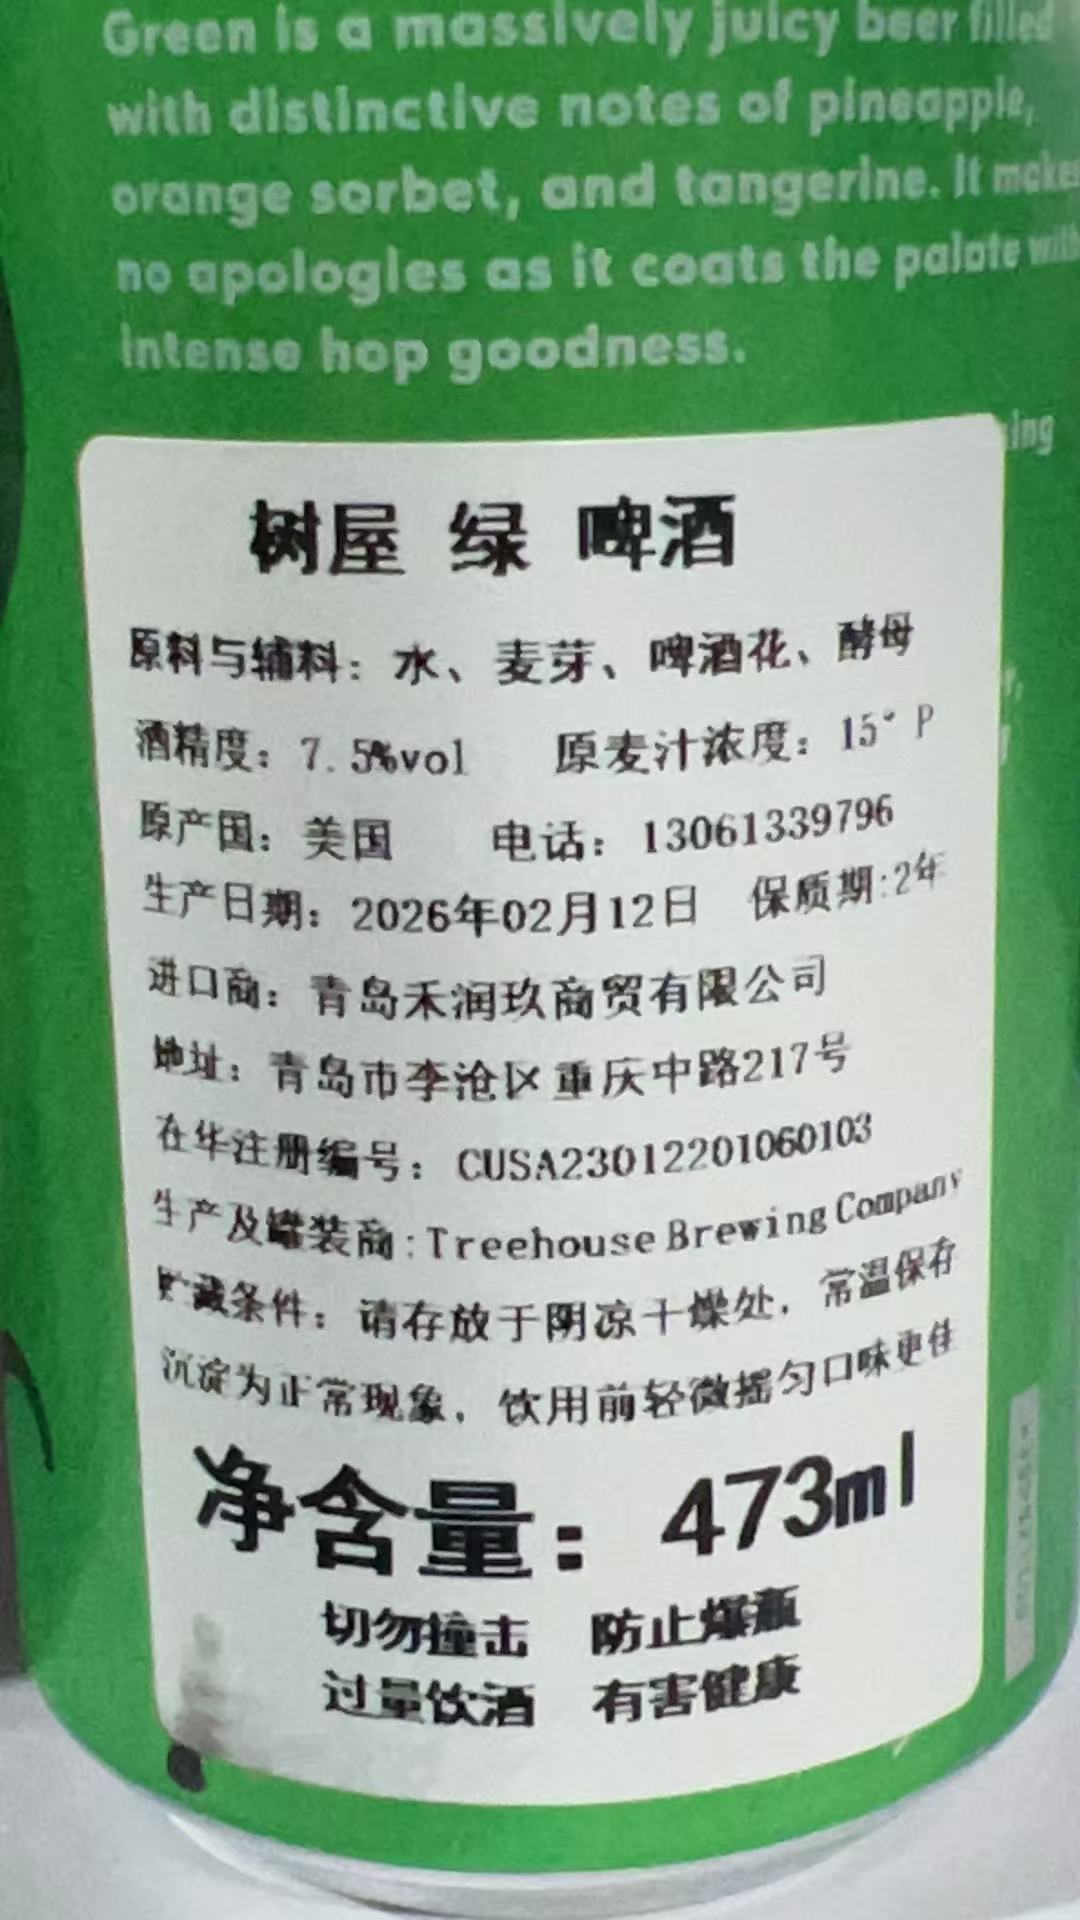 Green is a massively juicy beer filled
with distinctive notes of pineapple,
orange sorbet, and tangerine. It makes
no apologies as it coats the palate with
intense hop goodness.
树屋 绿 啤酒
原料与辅料：水、麦芽、啤酒花、酵母
酒精度：7.5%vol 原麦汁浓度：15°P
原产国：美国 电话：13061339796
生产日期：2026年02月12日 保质期:2年
进口商：青岛禾润玖商贸有限公司
地址：青岛市李沧区重庆中路217号
在华注册编号：CUSA23012201060103
生产及罐装商:Treehouse Brewing Company
贮藏条件：请存放于阴凉干燥处，常温保存
沉淀为正常现象，饮用前轻微摇匀口味更佳
净含量：473ml
切勿撞击 防止爆瓶
过量饮酒 有害健康